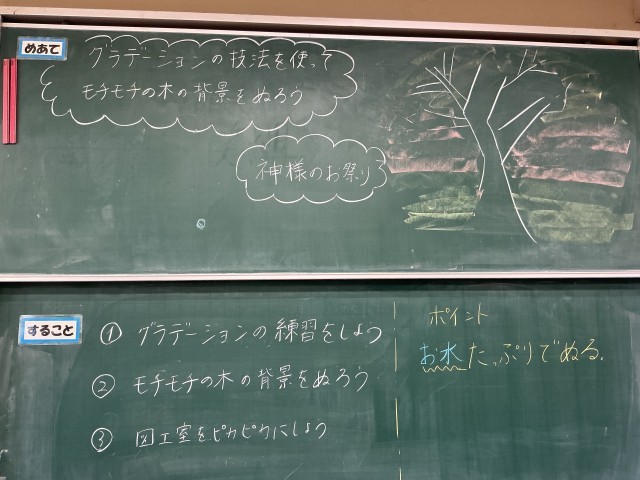 めあて
グラデーションの技法を使って
モチモチの木の背景をぬろう
神様のお祭り
すること
① グラデーションの練習をしよう
② モチモチの木の背景をぬろう
③ 図工室をピカピカにしよう
ポイント
お水たっぷりでぬる。